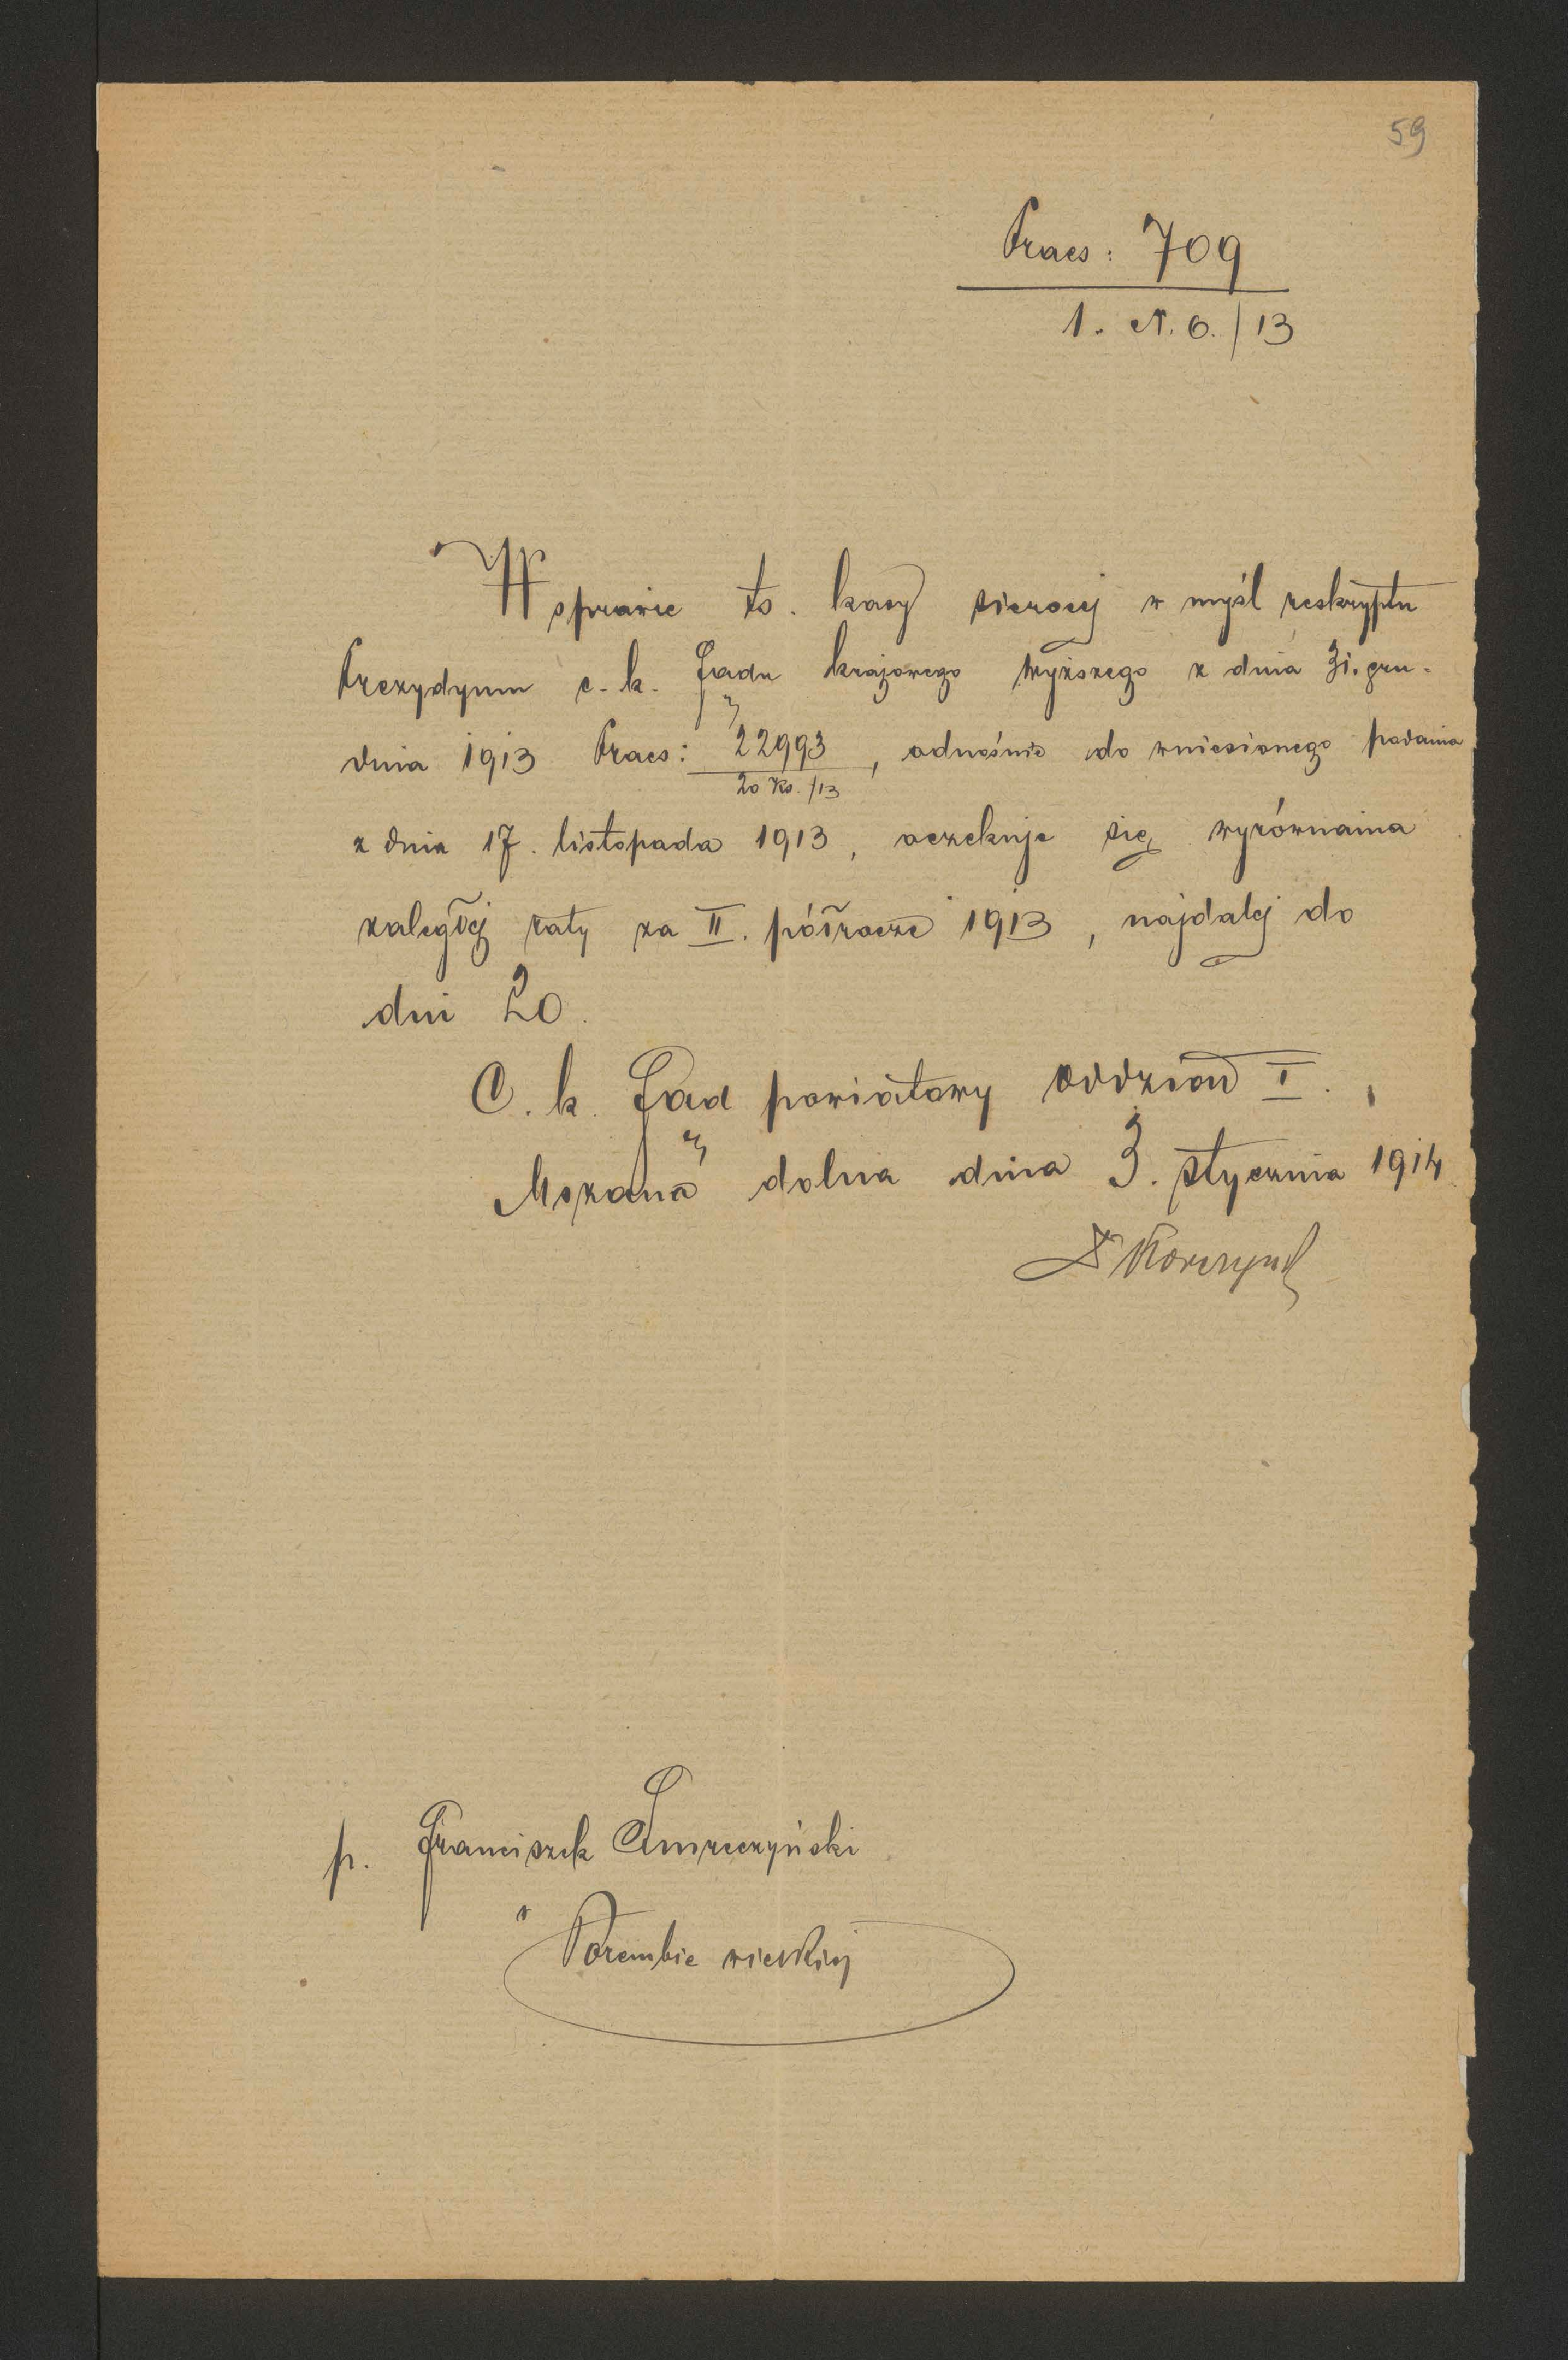 59
Praes: 709
1. N. 6. / 13
W sprawie ts. kasy sierocej w myśl reskryptu
Prezydyum c. k. Sądu krajowego wyższego z dnia 31. gru-
dnia 1913 Praes: 22993, odnośnie do wniesionego podania
20 Ks. /13
z dnia 17. listopada 1913, oczekuje się wyrównania
zaległej raty za II. półrocze 1913, najdalej do
dni 20.
C. k. Sąd powiatowy oddział I.
Mszana dolna dnia 3. stycznia 1914
p. Franciszek Smreczyński
w Porembie wielkiej